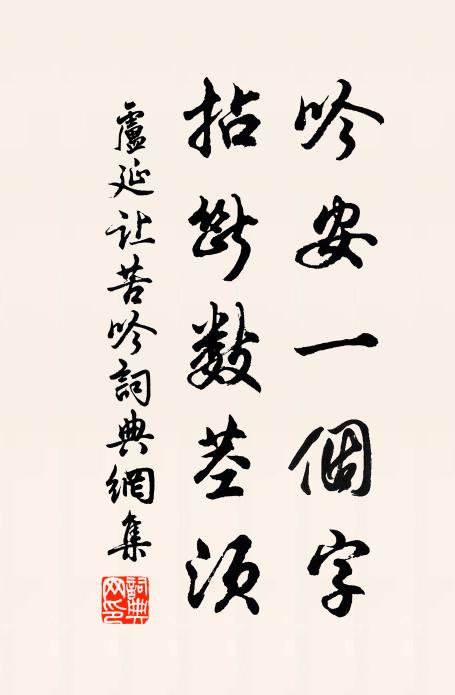 吟安一個字
拈斷數莖須
盧延让苦吟詞典網集
詞典网印